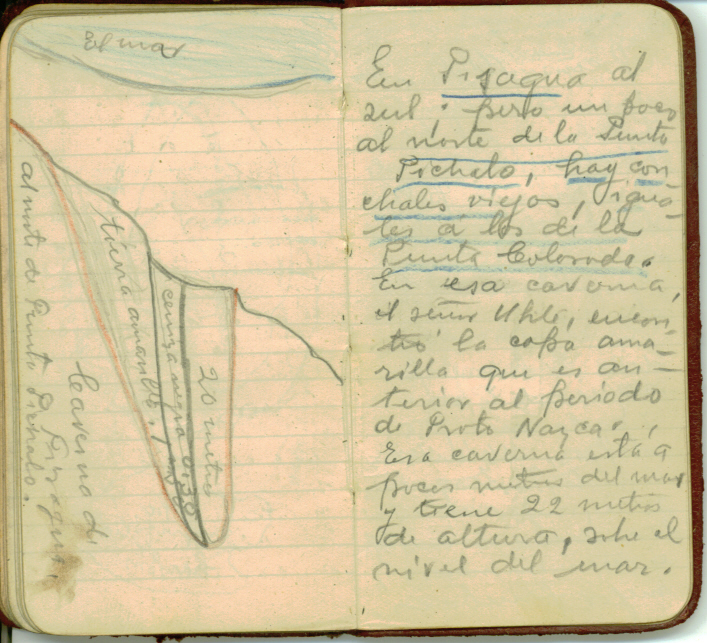 El mar
tierra amarilla. 1 m 50
ceniza negra 0.30
20 metros
Caverna de
Pisagua,
al norte de Punta Pichalo.
En Pisagua al
sul, pero un poco
al norte de la Punta
Pichalo, hay con
chales viejos, igua-
les a los de la
Punta Colorada.
En esa caverna,
el señor Uhle, encon-
tró la capa ama-
rilla que es an-
terior al período
de Proto Nazca.
Esa caverna está a
pocos metros del mar
y tiene 22 metros
de altura, sobre el
nivel del mar.